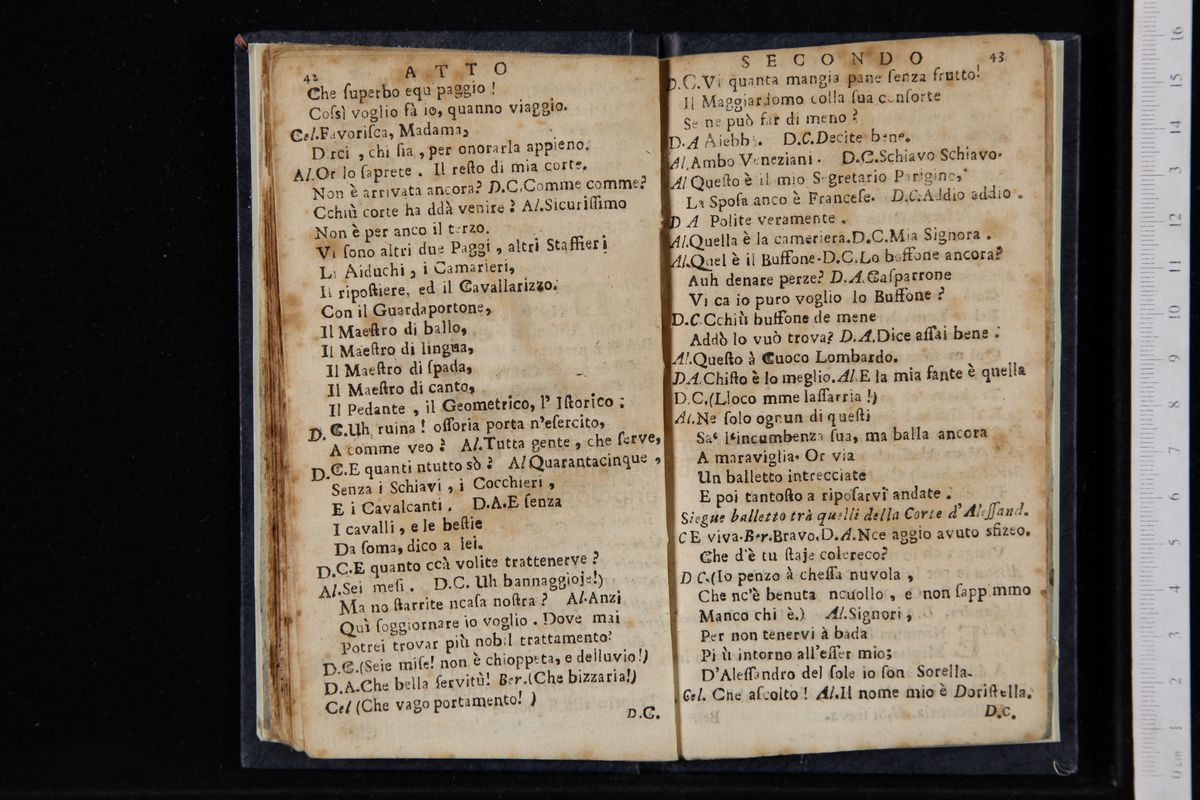 42
ATTO
Che ſuperbo equ paggio!
Coſsì voglio fà io, quanno viaggio.
Cel.Favoriſca, Madama,
D rci, chi ſia, per onorarla appieno.
Al.Or lo ſaprete. Il reſto di mia corte.
Non è arrivata ancora? D.C.Comme comme?
Cchiù corte ha ddà venire? Al.Sicuriſſimo
Non è per anco il terzo.
Vi ſono altri due Paggi, altri Staffieri
Li Aiduchi, i Camarieri,
Il ripoſtiere, ed il Cavallarizzo.
Con il Guardaportone,
Il Maeſtro di ballo,
Il Maeſtro di lingua,
Il Maeſtro di ſpada,
Il Maeſtro di canto,
Il Pedante, il Geometrico, l' Iſtorico;
D.C.Uh ruina! oſſoria porta n'eſercito,
A comme veo? Al.Tutta gente, che ſerve,
D.C.E quanti ntutto sò? Al Quarantacinque,
Senza i Schiavi, i Cocchieri,
E i Cavalcanti. D.A.E ſenza
I cavalli, e le beſtie
Da ſoma, dico a lei.
D.C.E quanto ccà volite trattenerve?
Al.Sei meſi. D.C. Uh bannaggioje!)
Ma no ſtarrite ncaſa noſtra? Al.Anzi
Quì ſoggiornare io voglio. Dove mai
Potrei trovar più nobil trattamento?
D.C.(Seie miſe! non è chioppeta, e delluvio!)
D.A.Che bella ſervitù! Ber.(Che bizzaria!)
Cel (Che vago portamento! )
D.C.
SECONDO
43
D.C.Vi quanta mangia pane ſenza frutto!
Il Maggiardomo colla ſua conſorte
Se ne può far di meno?
D.A Aiebbò. D.C.Decite bene.
Al.Ambo Veneziani. D.C.Schiavo Schiavo.
Al Queſto è il mio Segretario Parigino,
La Spoſa anco è Franceſe. D.C.Addio addio.
D A Polite veramente.
Al.Quella è la cameriera.D.C.Mia Signora.
Al.Quel è il Buffone.D.C.Lo boffone ancora?
Auh denare perze? D.A.Gaſparrone
Vi ca io puro voglio lo Buffone?
D.C.Cchiù buffone de mene
Addò lo vuò trova? D.A.Dice aſſai bene:
Al.Queſto à Cuoco Lombardo.
D A.Chiſto è lo meglio.Al.E la mia fante è quella
D.C.(Lloco mme laſſarria!)
Al.Ne ſolo ognun di queſti
Sa l'incumbenza ſua, ma balla ancora
A maraviglia. Or via
Un balletto intrecciate
E poi tantoſto a ripoſarvi andate.
Siegue balletto trà quelli della Corte d'Aleſſand.
C E viva.Ber.Bravo.D.A.Nce aggio avuto sfizeo.
Che d'è tu ſtaje colereco?
D C.(Io penzo à cheſſa nuvola,
Che nc'è benuta ncuollo, e non ſapp mmo
Manco chi è.) Al.Signori,
Per non tenervi à bada
Pi ù intorno all'eſſer mio;
D'Aleſſandro del ſole io ſon Sorella.
Cel. Che aſcolto! Al.Il nome mio è Doriſtella.
D.C.